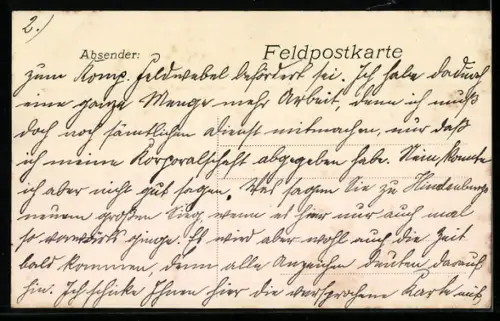 2.)
Absender: Feldpostkarte
zum Komp. Feldwebel befördert sei. Ich habe dadurch
eine ganze Menge mehr Arbeit, denn ich muß
doch noch sämtlichen Dienst mitmachen, nur daß
ich meine Korporalschaft abgegeben habe. Nein, konnte
ich aber nicht gut sagen. Was sagen Sie zu Hindenburgs
neuem großen Sieg, wenn es hier nur auch mal
so vorwärts ginge. Es wird aber wohl auch die Zeit
bald kommen, denn alle Anzeichen deuten darauf
hin. Ich schicke Ihnen hier die versprochene Karte mit,